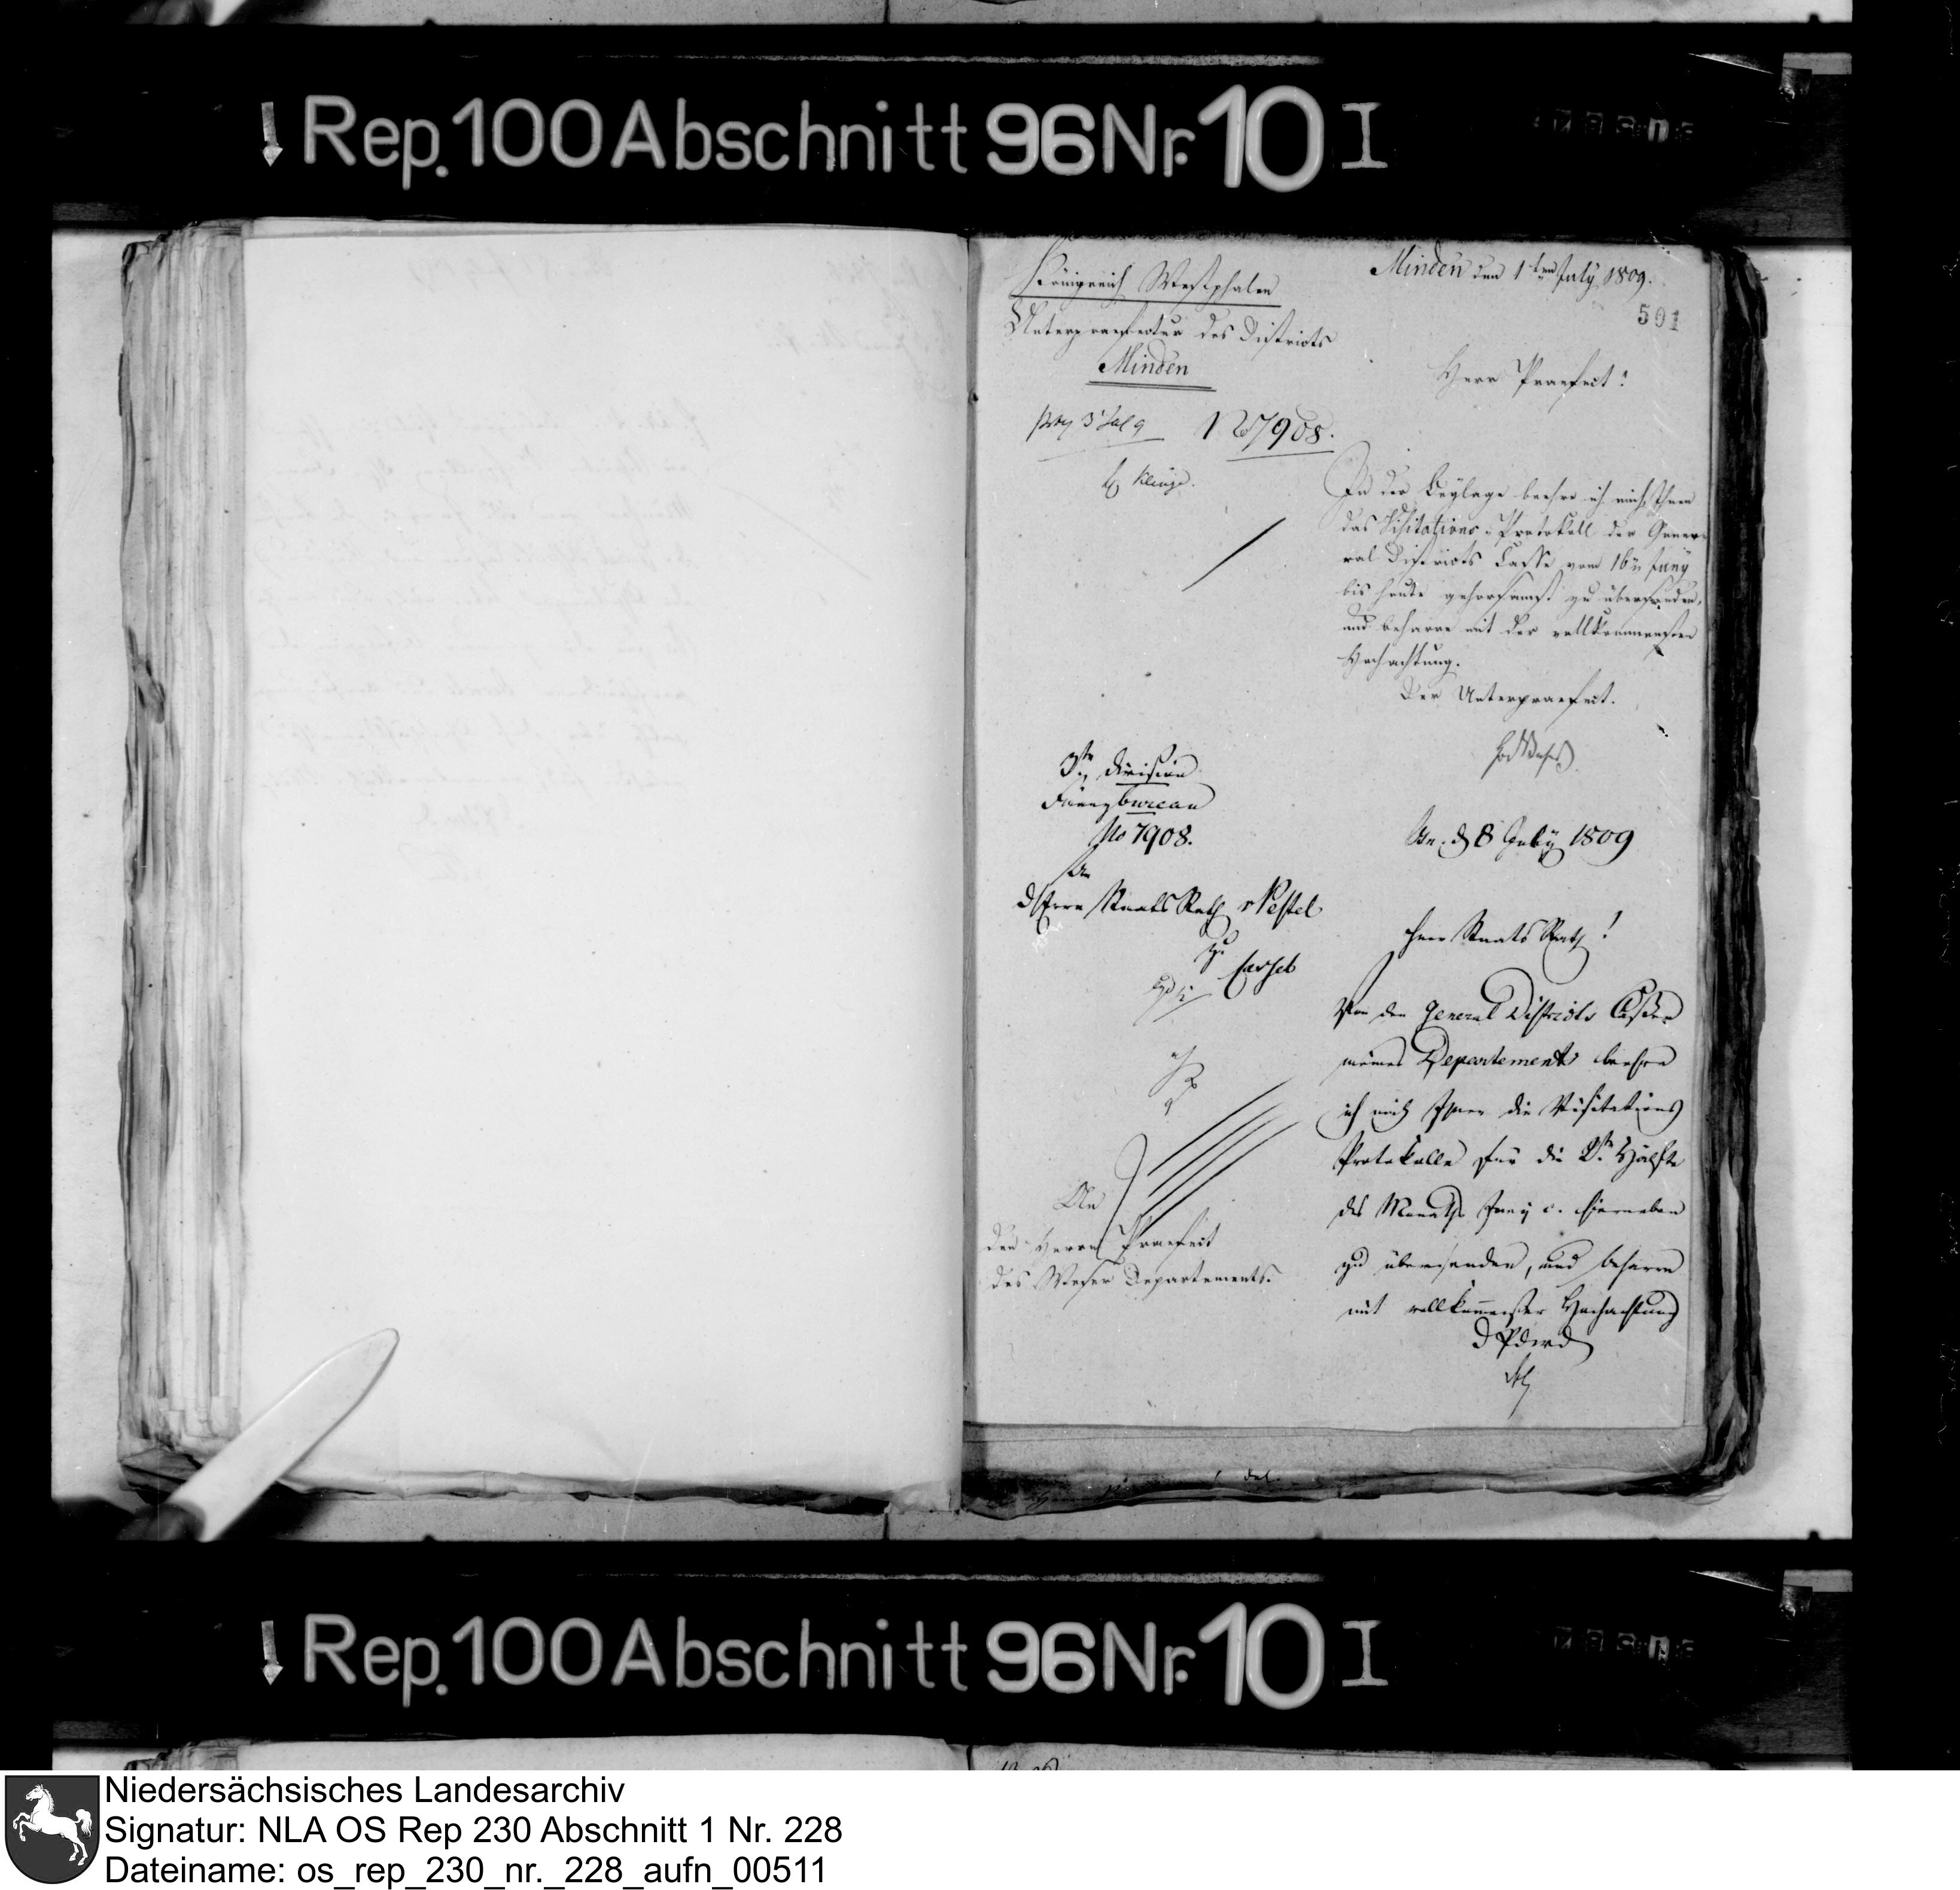 Rep. 100 Abschnitt 96 Nr. 10 I
Königreich Westphalen
Unterpraefectur des Districts
Minden
Minden den 1ten July 1809.
501
Herr Praefect!
No 7908.
In der Beylage beehre ich mich, Ihnen
das Visitations-Protokoll der Gene-
ral Districts Casse vom 16n Juny
bis heute gehorsamst zu übersenden,
und beharre mit der vollkommensten
Hochachtung.
Der Unterpraefect.
3te Division
Finanzbureau
No 7908.
An
d Herrn Staats Rath v Pestel
zu
Cassel
An
den Herrn Praefect
des Weser Departements.
Osn. d 8 July 1809
Herr Staats Rath!
Von den General Districts Cassen
meines Departements beehre
ich mich Ihnen die Visitations
Protokolle für die 2te Hälfte
des Monaths Juny c. hierneben
zu übersenden, und beharre
mit vollkommenster Hochachtung
d P d W d
Rep. 100 Abschnitt 96 Nr. 10 I
Niedersächsisches Landesarchiv
Signatur: NLA OS Rep 230 Abschnitt 1 Nr. 228
Dateiname: os_rep_230_nr._228_aufn_00511